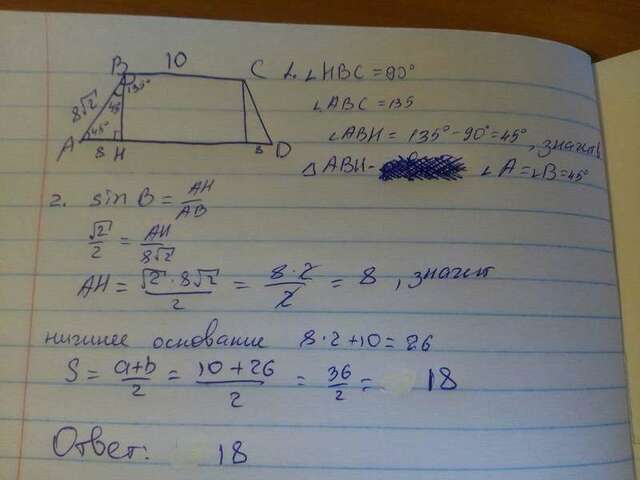 B 10 C
8√2 45 135°
A 45° 8 H 8 D
1. ∠HBC = 90°
∠ABC = 135
∠ABH = 135° - 90° = 45°, значит
△ABH - ∠A = ∠B = 45°
2. sin B = AH/AB
√2/2 = AH/8√2
AH = √2 · 8√2/2 = 8·2/2 = 8, значит
нижнее основание 8·2+10 = 26
S = a+b/2 = 10+26/2 = 36/2 = 18
Ответ: 18